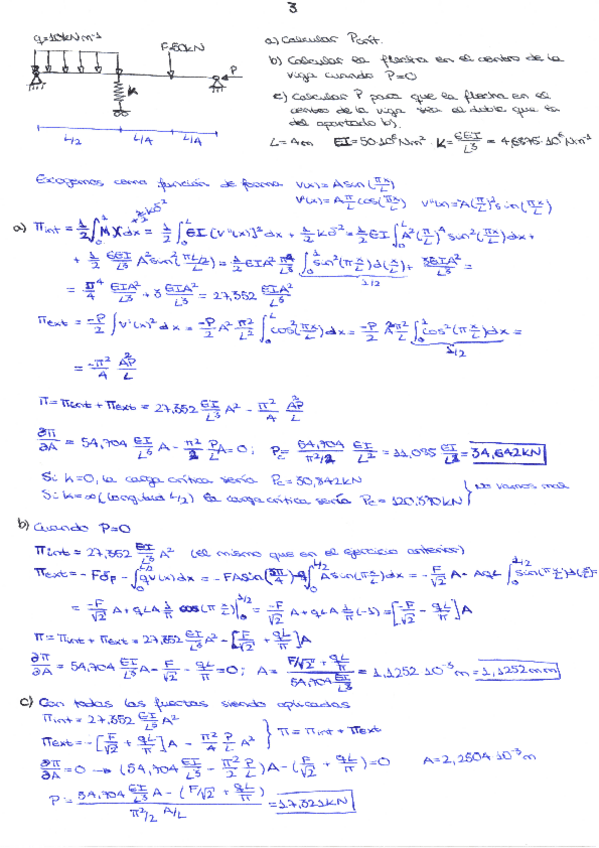 3
q=10kN m⁻¹
F=50kN
P
K
L/2 L/4 L/4
a) Calcular Pcrit.
b) Calcular la flecha en el centro de la
viga cuando P=0
c) Calcular P para que la flecha en el
centro de la viga sea el doble que la
del apartado b).
L=4m EI=50·10⁶Nm² K=6EI/L³ = 4,6875·10⁶Nm⁻¹
Escogemos como función de forma v(x)=A sin(πx/L)
v'(x)=A π/L cos(πx/L) v''(x)=-A(π/L)² sin(πx/L)
+ ½ kδ²
a) πint = ½∫₀ᴸ M χ dx = ½∫₀ᴸ EI [v''(x)]² dx + ½ kδ² = ½ EI ∫₀ᴸ A²(π/L)⁴ sin²(πx/L) dx +
+ ½ 6EI/L³ A² sin²(πL/2/L) = ½ EIA² π⁴/L³ ∫₀¹ sin²(π x/L) d(x/L) + 3EIA²/L³ =
1/2
= π⁴/4 EIA²/L³ + 3 EIA²/L³ = 27,352 EIA²/L³
πext = -P/2 ∫v'(x)² dx = -P/2 A² π²/L² ∫₀ᴸ cos²(πx/L) dx = -P/2 A² π²/L ∫₀¹ cos²(π x/L) dx =
1/2
= -π²/4 A²P/L
π = πint + πext = 27,352 EI/L³ A² - π²/4 A²P/L
∂π/∂A = 54,704 EI/L³ A - π²/2 P/L A = 0; Pc = 54,704/(π²/2) EI/L² = 11,085 EI/L² = 34,642kN
Si k=0, la carga crítica sería Pc=30,842kN
Si k=∞ (longitud L/2) la carga crítica sería Pc=120,370kN } No vamos mal
b) Cuando P=0
πint = 27,352 EI/L³ A² (el mismo que en el ejercicio anterior)
πext = -Fδp - ∫₀^(L/2) qv(x)dx = -FA sin(3π/4) - q∫₀^(L/2) A sin(πx/L)dx = -F/√2 A - AqL ∫₀^(1/2) sin(π x/L)d(x/L) =
= -F/√2 A + qLA 1/π cos(π x/L)|₀^(1/2) = -F/√2 A + qLA 1/π (-1) = [-F/√2 - qL/π] A
π = πint + πext = 27,352 EI/L³ A² - [F/√2 + qL/π] A
∂π/∂A = 54,704 EI/L³ A - F/√2 - qL/π = 0; A = (F/√2 + qL/π)/(54,704 EI/L³) = 1,1252·10⁻³m = 1,1252mm
c) Con todas las fuerzas siendo aplicadas
πint = 27,352 EI/L³ A²
πext = -[F/√2 + qL/π] A - π²/4 P/L A² } π = πint + πext
∂π/∂A = 0 → (54,704 EI/L³ - π²/2 P/L) A - (F/√2 + qL/π) = 0 A=2,2504·10⁻³m
P = (54,704 EI/L³ A - (F/√2 + qL/π))/(π²/2 A/L) = 17,321kN